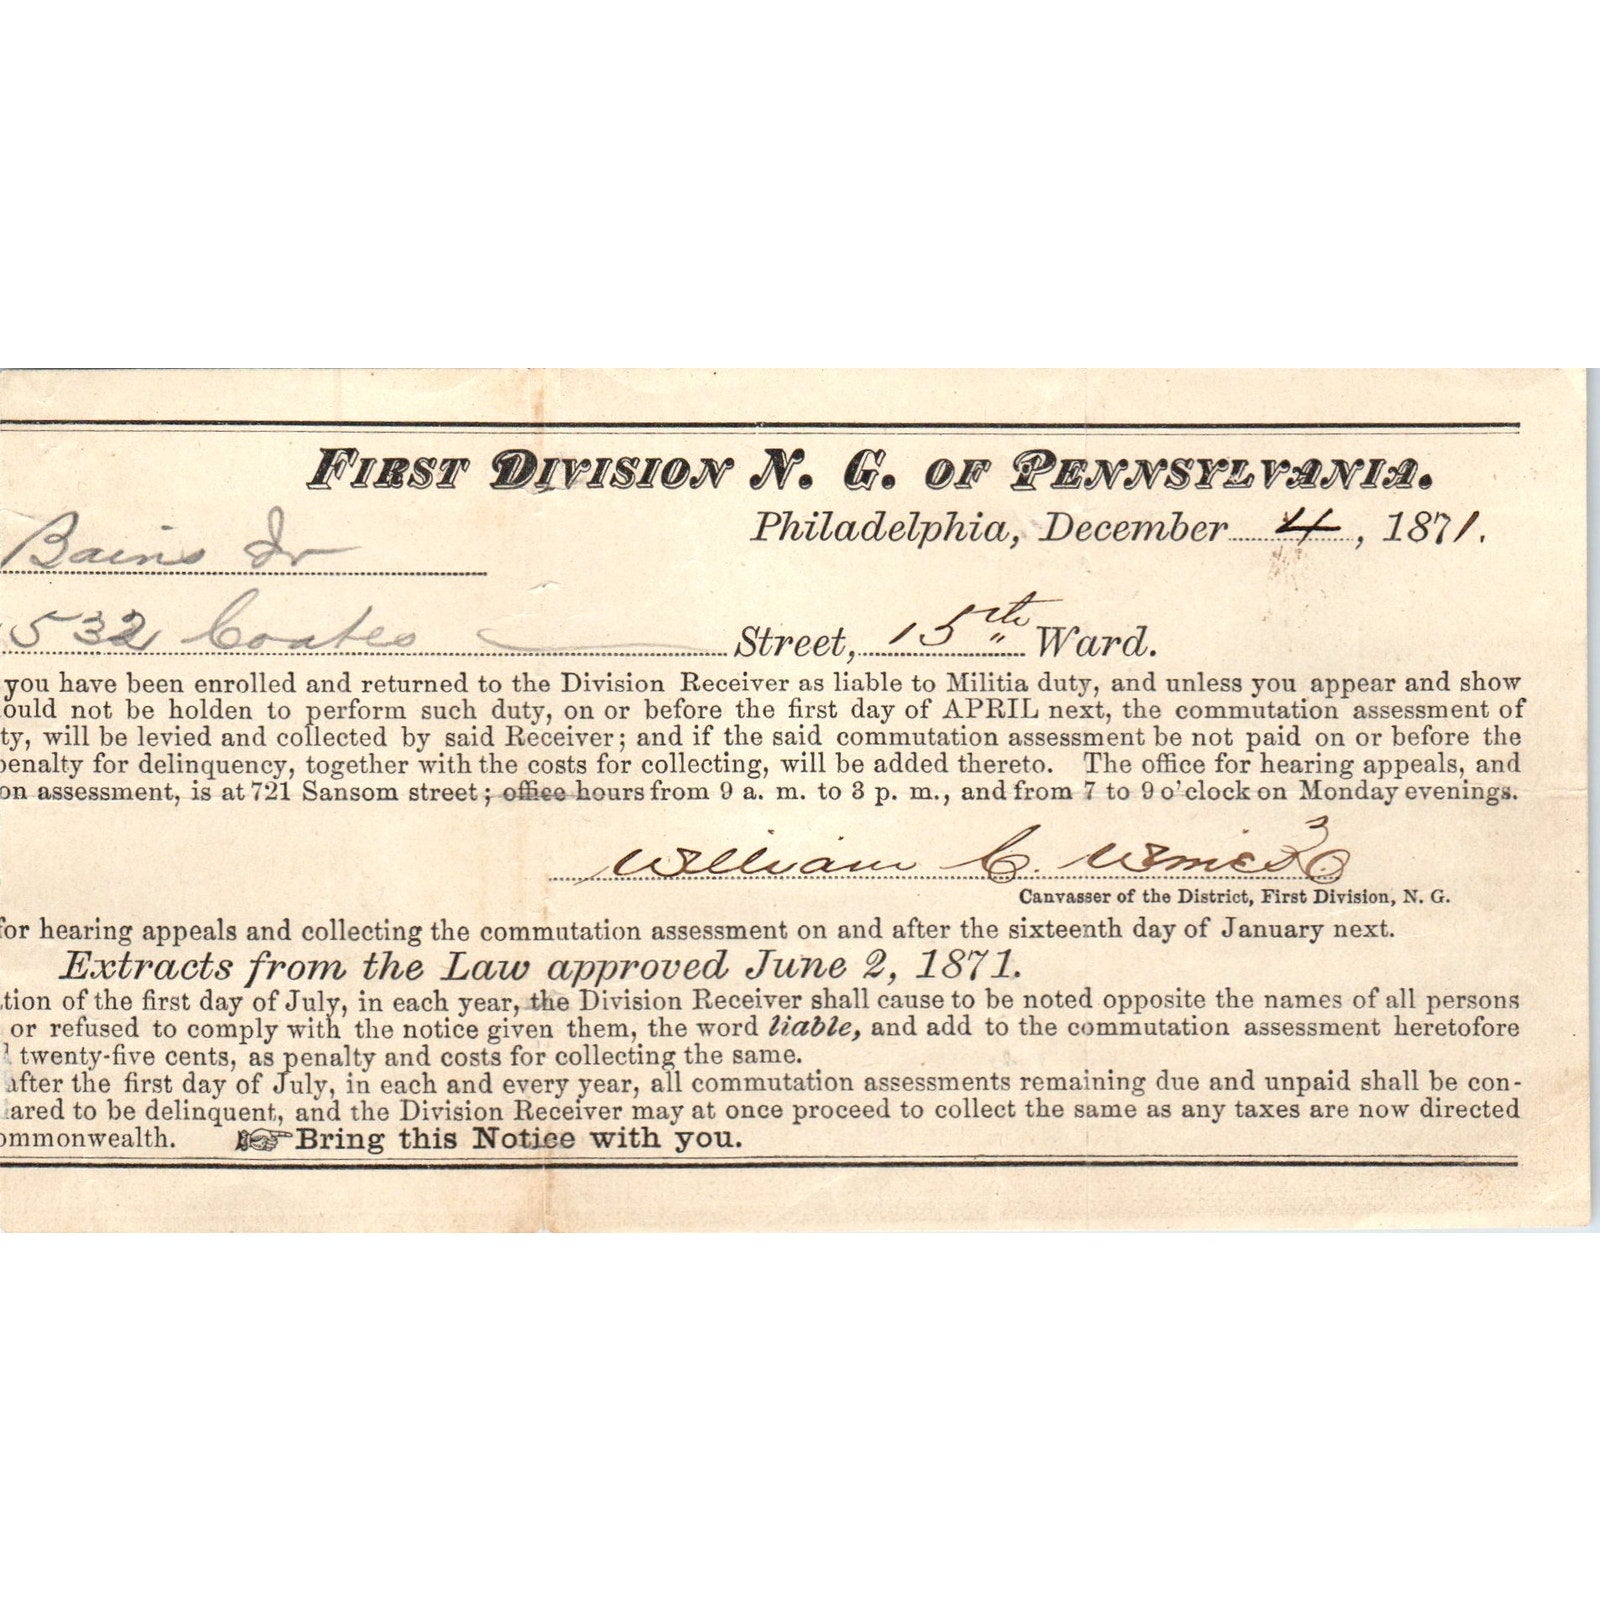 FIRST DIVISION N. G. OF PENNSYLVANIA.
Philadelphia, December 4, 1871.
Bains Jr
532 Coates Street, 15th Ward.
you have been enrolled and returned to the Division Receiver as liable to Militia duty, and unless you appear and show
ould not be holden to perform such duty, on or before the first day of APRIL next, the commutation assessment of
ty, will be levied and collected by said Receiver; and if the said commutation assessment be not paid on or before the
penalty for delinquency, together with the costs for collecting, will be added thereto. The office for hearing appeals, and
on assessment, is at 721 Sansom street; office hours from 9 a. m. to 3 p. m., and from 7 to 9 o'clock on Monday evenings.
William C.
Canvasser of the District, First Division, N. G.
for hearing appeals and collecting the commutation assessment on and after the sixteenth day of January next.
Extracts from the Law approved June 2, 1871.
tion of the first day of July, in each year, the Division Receiver shall cause to be noted opposite the names of all persons
or refused to comply with the notice given them, the word liable, and add to the commutation assessment heretofore
twenty-five cents, as penalty and costs for collecting the same.
after the first day of July, in each and every year, all commutation assessments remaining due and unpaid shall be con-
ared to be delinquent, and the Division Receiver may at once proceed to collect the same as any taxes are now directed
ommonwealth. ☞ Bring this Notice with you.